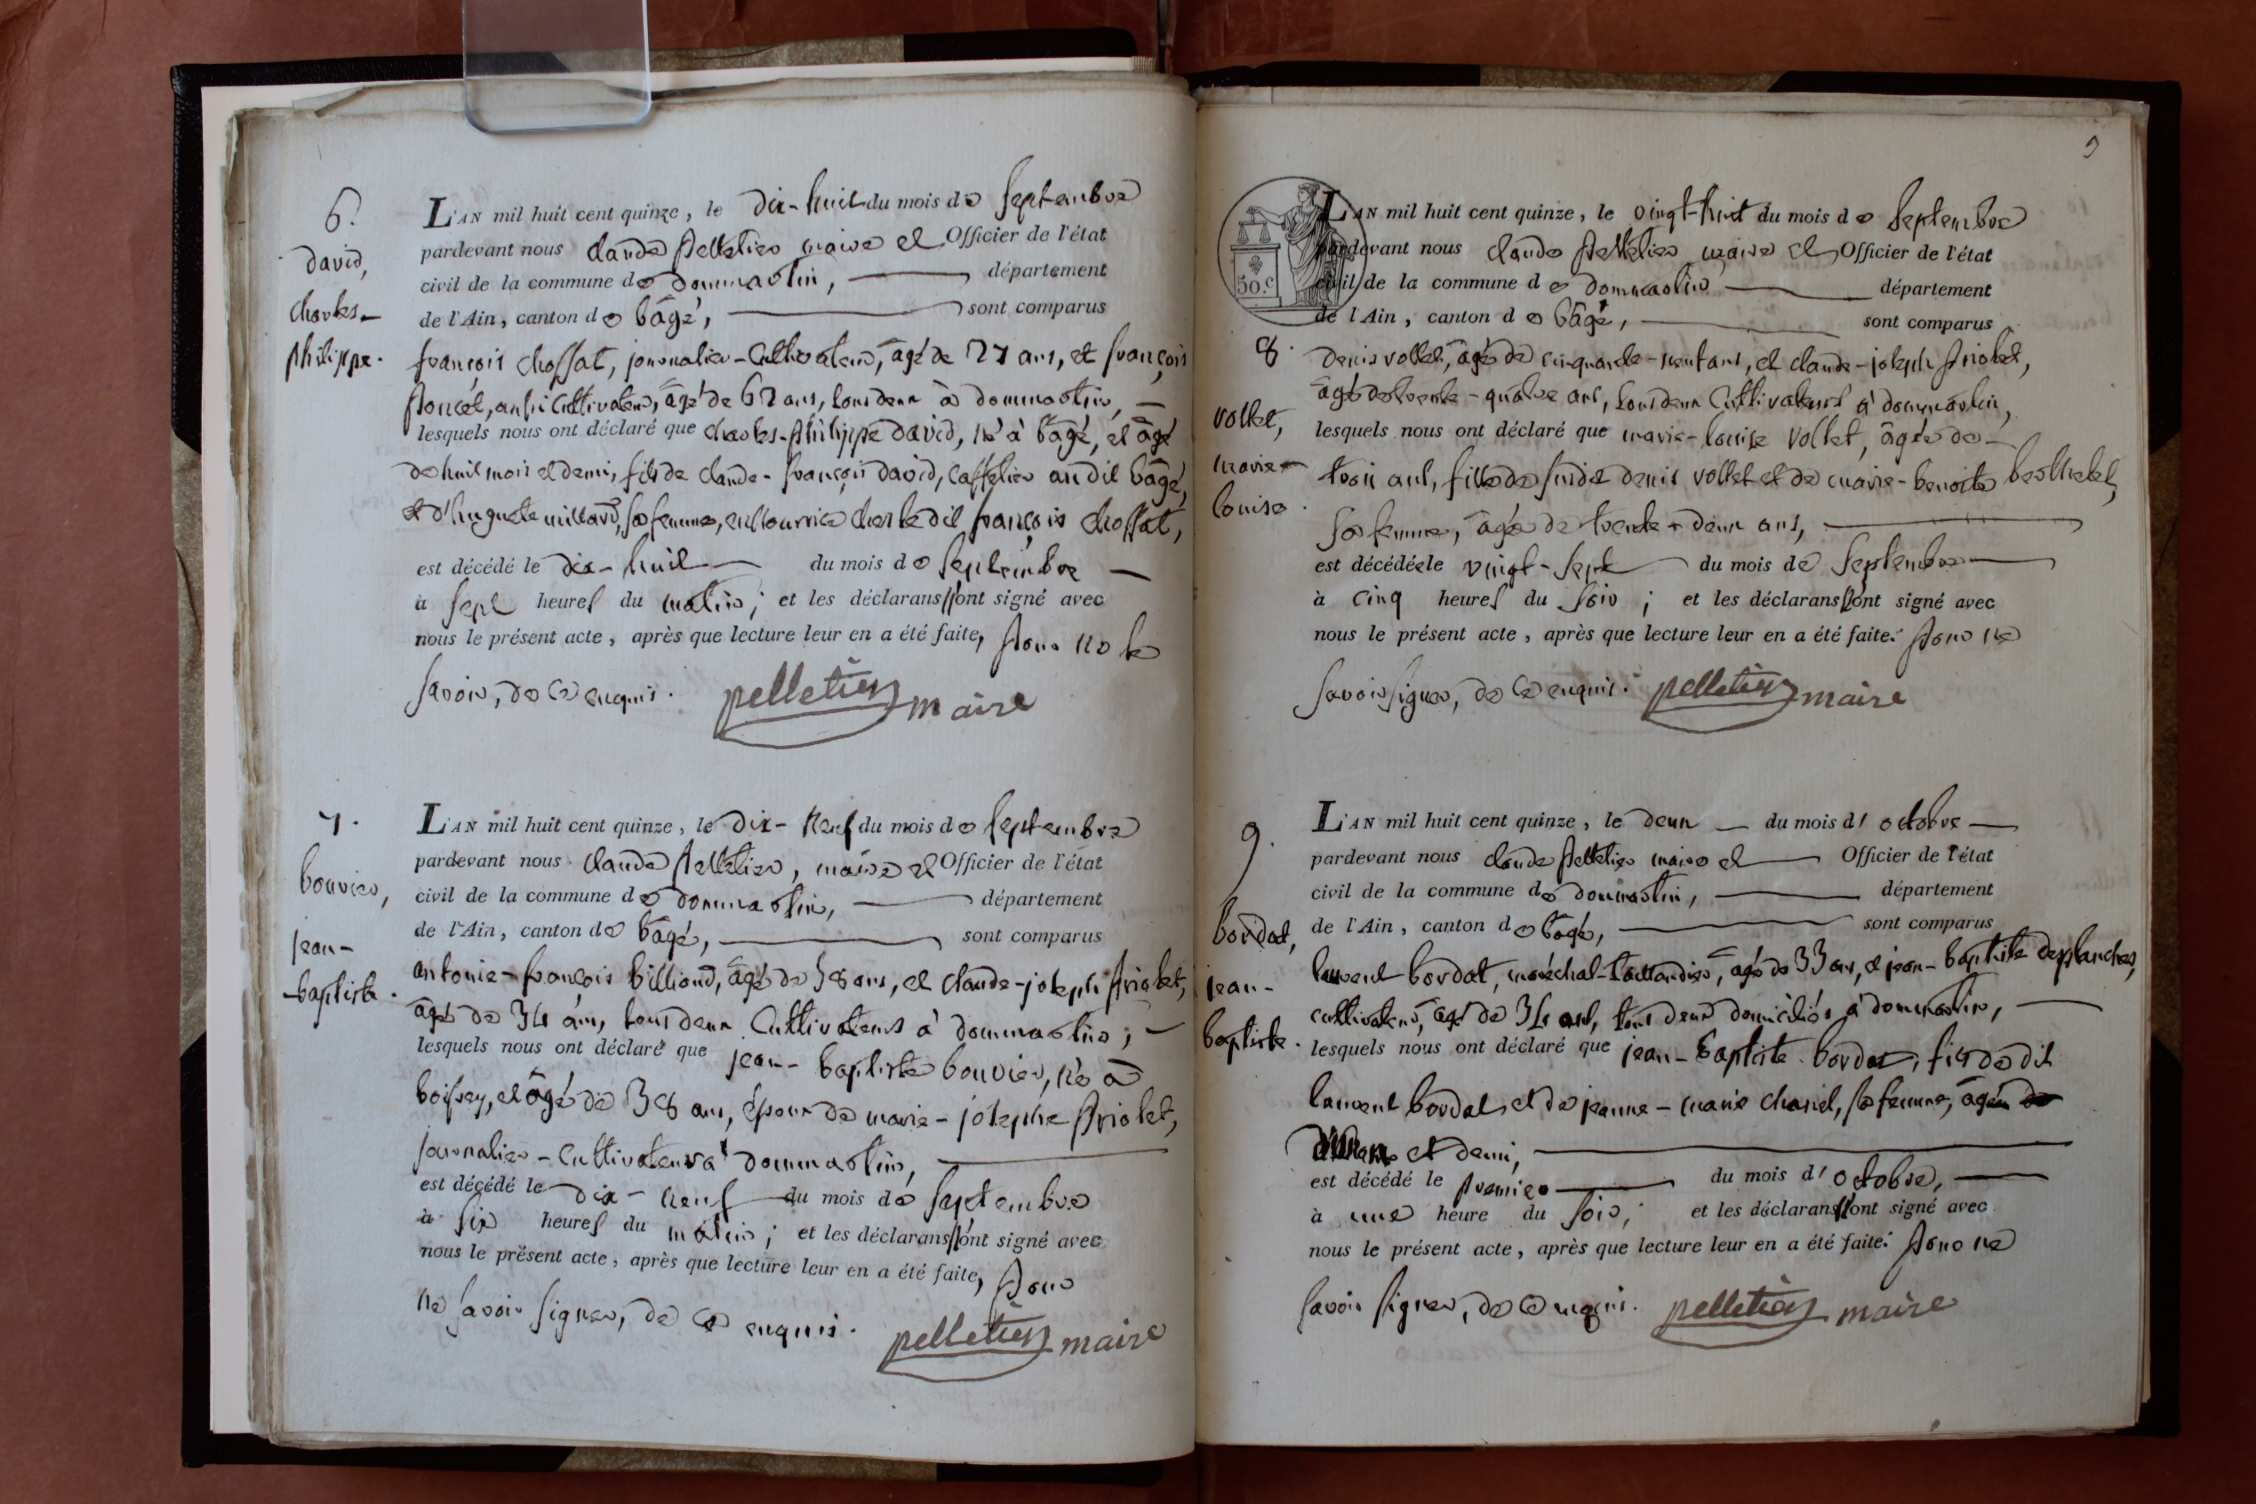 6.
david,
charles-
philippe.
L'AN mil huit cent quinze, le dix-huit du mois de septembre
pardevant nous claude pelletier maire et Officier de l'état
civil de la commune de dommartin, département
de l'Ain, canton de bâgé, sont comparus
françois choffat, journalier-cultivateur, âgé de 27 ans, et françois
poncet, aussi cultivateur, âgé de 62 ans, tous deux à dommartin,
lesquels nous ont déclaré que charles-philippe david, né à bâgé, et âgé
de huit mois et demi, fils de claude-françois david, caffetier audit bâgé,
et d'huguete millard, sa femme, en nourrice chez le dit françois choffat,
est décédé le dix-huit du mois de septembre
à sept heures du matin; et les déclarans n'ont signé avec
nous le présent acte, après que lecture leur en a été faite, pour ne le
savoir, de ce enquis. pelletier maire
7.
bouvier,
jean-
baptiste.
L'AN mil huit cent quinze, le dix-neuf du mois de septembre
pardevant nous claude pelletier, maire et Officier de l'état
civil de la commune de dommartin, département
de l'Ain, canton de bâgé, sont comparus
antoine-françois billioud, âgé de 58 ans, et claude-joseph priolet,
âgé de 34 ans, tous deux cultivateurs à dommartin;
lesquels nous ont déclaré que jean-baptiste bouvier, né à
boissey, et âgé de 38 ans, époux de marie-josephe priolet,
journalier-cultivateur à dommartin,
est décédé le dix-neuf du mois de septembre
à six heures du matin; et les déclarans n'ont signé avec
nous le présent acte, après que lecture leur en a été faite, pour
ne savoir signer, de ce enquis. pelletier maire
9
50.c
8.
vollet,
marie-
louise.
L'AN mil huit cent quinze, le vingt-huit du mois de septembre
pardevant nous claude pelletier maire et Officier de l'état
civil de la commune de dommartin département
de l'Ain, canton de bâgé, sont comparus
denis vollet, âgé de cinquante-neuf ans, et claude-joseph priolet,
âgé de trente-quatre ans, tous deux cultivateurs à dommartin,
lesquels nous ont déclaré que marie-louise vollet, âgée de
trois ans, fille de sudit denis vollet et de marie-benoite berthelet,
sa femme, âgée de trente-deux ans,
est décédée le vingt-sept du mois de septembre
à cinq heures du soir; et les déclarans n'ont signé avec
nous le présent acte, après que lecture leur en a été faite. pour ne
savoir signer, de ce enquis. pelletier maire
9.
bordat,
jean-
baptiste.
L'AN mil huit cent quinze, le deux du mois d'octobre
pardevant nous claude pelletier maire et Officier de l'état
civil de la commune de dommartin, département
de l'Ain, canton de bâgé, sont comparus
laurent bordat, maréchal-taillandier, âgé de 33 ans, et jean-baptiste desplanches,
cultivateur, âgé de 34 ans, tous deux domiciliés à dommartin,
lesquels nous ont déclaré que jean-baptiste bordat, fils de dit
laurent bordat et de jeanne-marie charvet, sa femme, âgé
et demi,
est décédé le premier du mois d'octobre,
à une heure du soir; et les déclarans n'ont signé avec
nous le présent acte, après que lecture leur en a été faite. pour ne
savoir signer, de ce enquis. pelletier maire